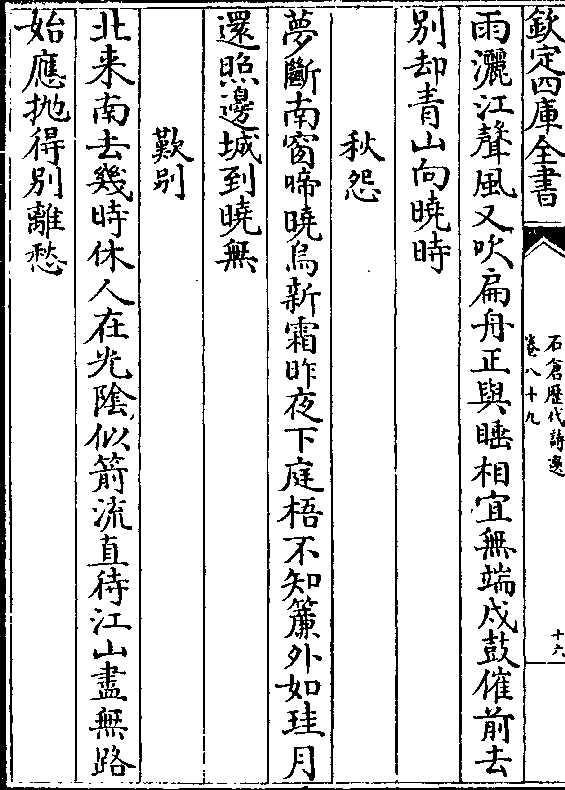 欽定四庫全書
石倉歷代詩選
卷八十九
十六
雨灑江聲風又吹扁舟正與睡相宜無端戍鼓催前去
别却青山向曉時
秋怨
夢斷南窗啼曉烏新霜昨夜下庭梧不知簾外如珪月
還照邊城到曉無
歎别
北來南去幾時休人在光陰似箭流直待江山盡無路
始應抛得别離愁